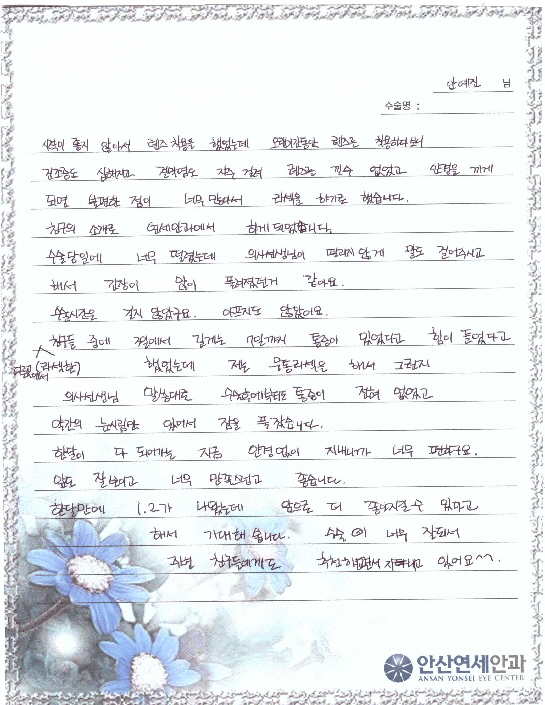 안예진 님
수술명 :
시력이 좋지 않아서 렌즈 착용을 했었는데 오랜기간동안 렌즈를 착용하다보니
건조증도 심해지고 결막염도 자주 걸려 렌즈는 낄수 없었고 안경을 끼게
되면 불편한 점이 너무 많아서 라섹을 하기로 했습니다.
친구의 소개로 연세안과에서 하게 되었습니다.
수술당일에 너무 떨렸는데 의사선생님이 떨리지 않게 말도 걸어주시고
해서 긴장이 많이 풀려졌던거 같아요.
수술시간은 길지 않았구요. 아프지도 않았어요.
친구들 중에 짧게서 길게는 7일까지 통증이 있었다고 힘이 들었다고
다른곳에서 (라섹한) 했었는데 저는 무통라섹을 해서 그런지
의사선생님 말씀대로 수술후에부터도 통증이 전혀 없었고
약간의 눈시림만 있어서 잠을 푹 잤습니다.
한달이 다 되어가는 지금 안경없이 지내니까 너무 편하구요.
앞도 잘보이고 너무 만족스럽고 좋습니다.
한달만에 1.2가 나왔는데 앞으로 더 좋아지실수 있다고
해서 기대해 봅니다. 수술이 너무 잘되서
주변 친구들에게도 추천하면서 지내고 있어요^^
안산연세안과
ANSAN YONSEI EYE CENTER